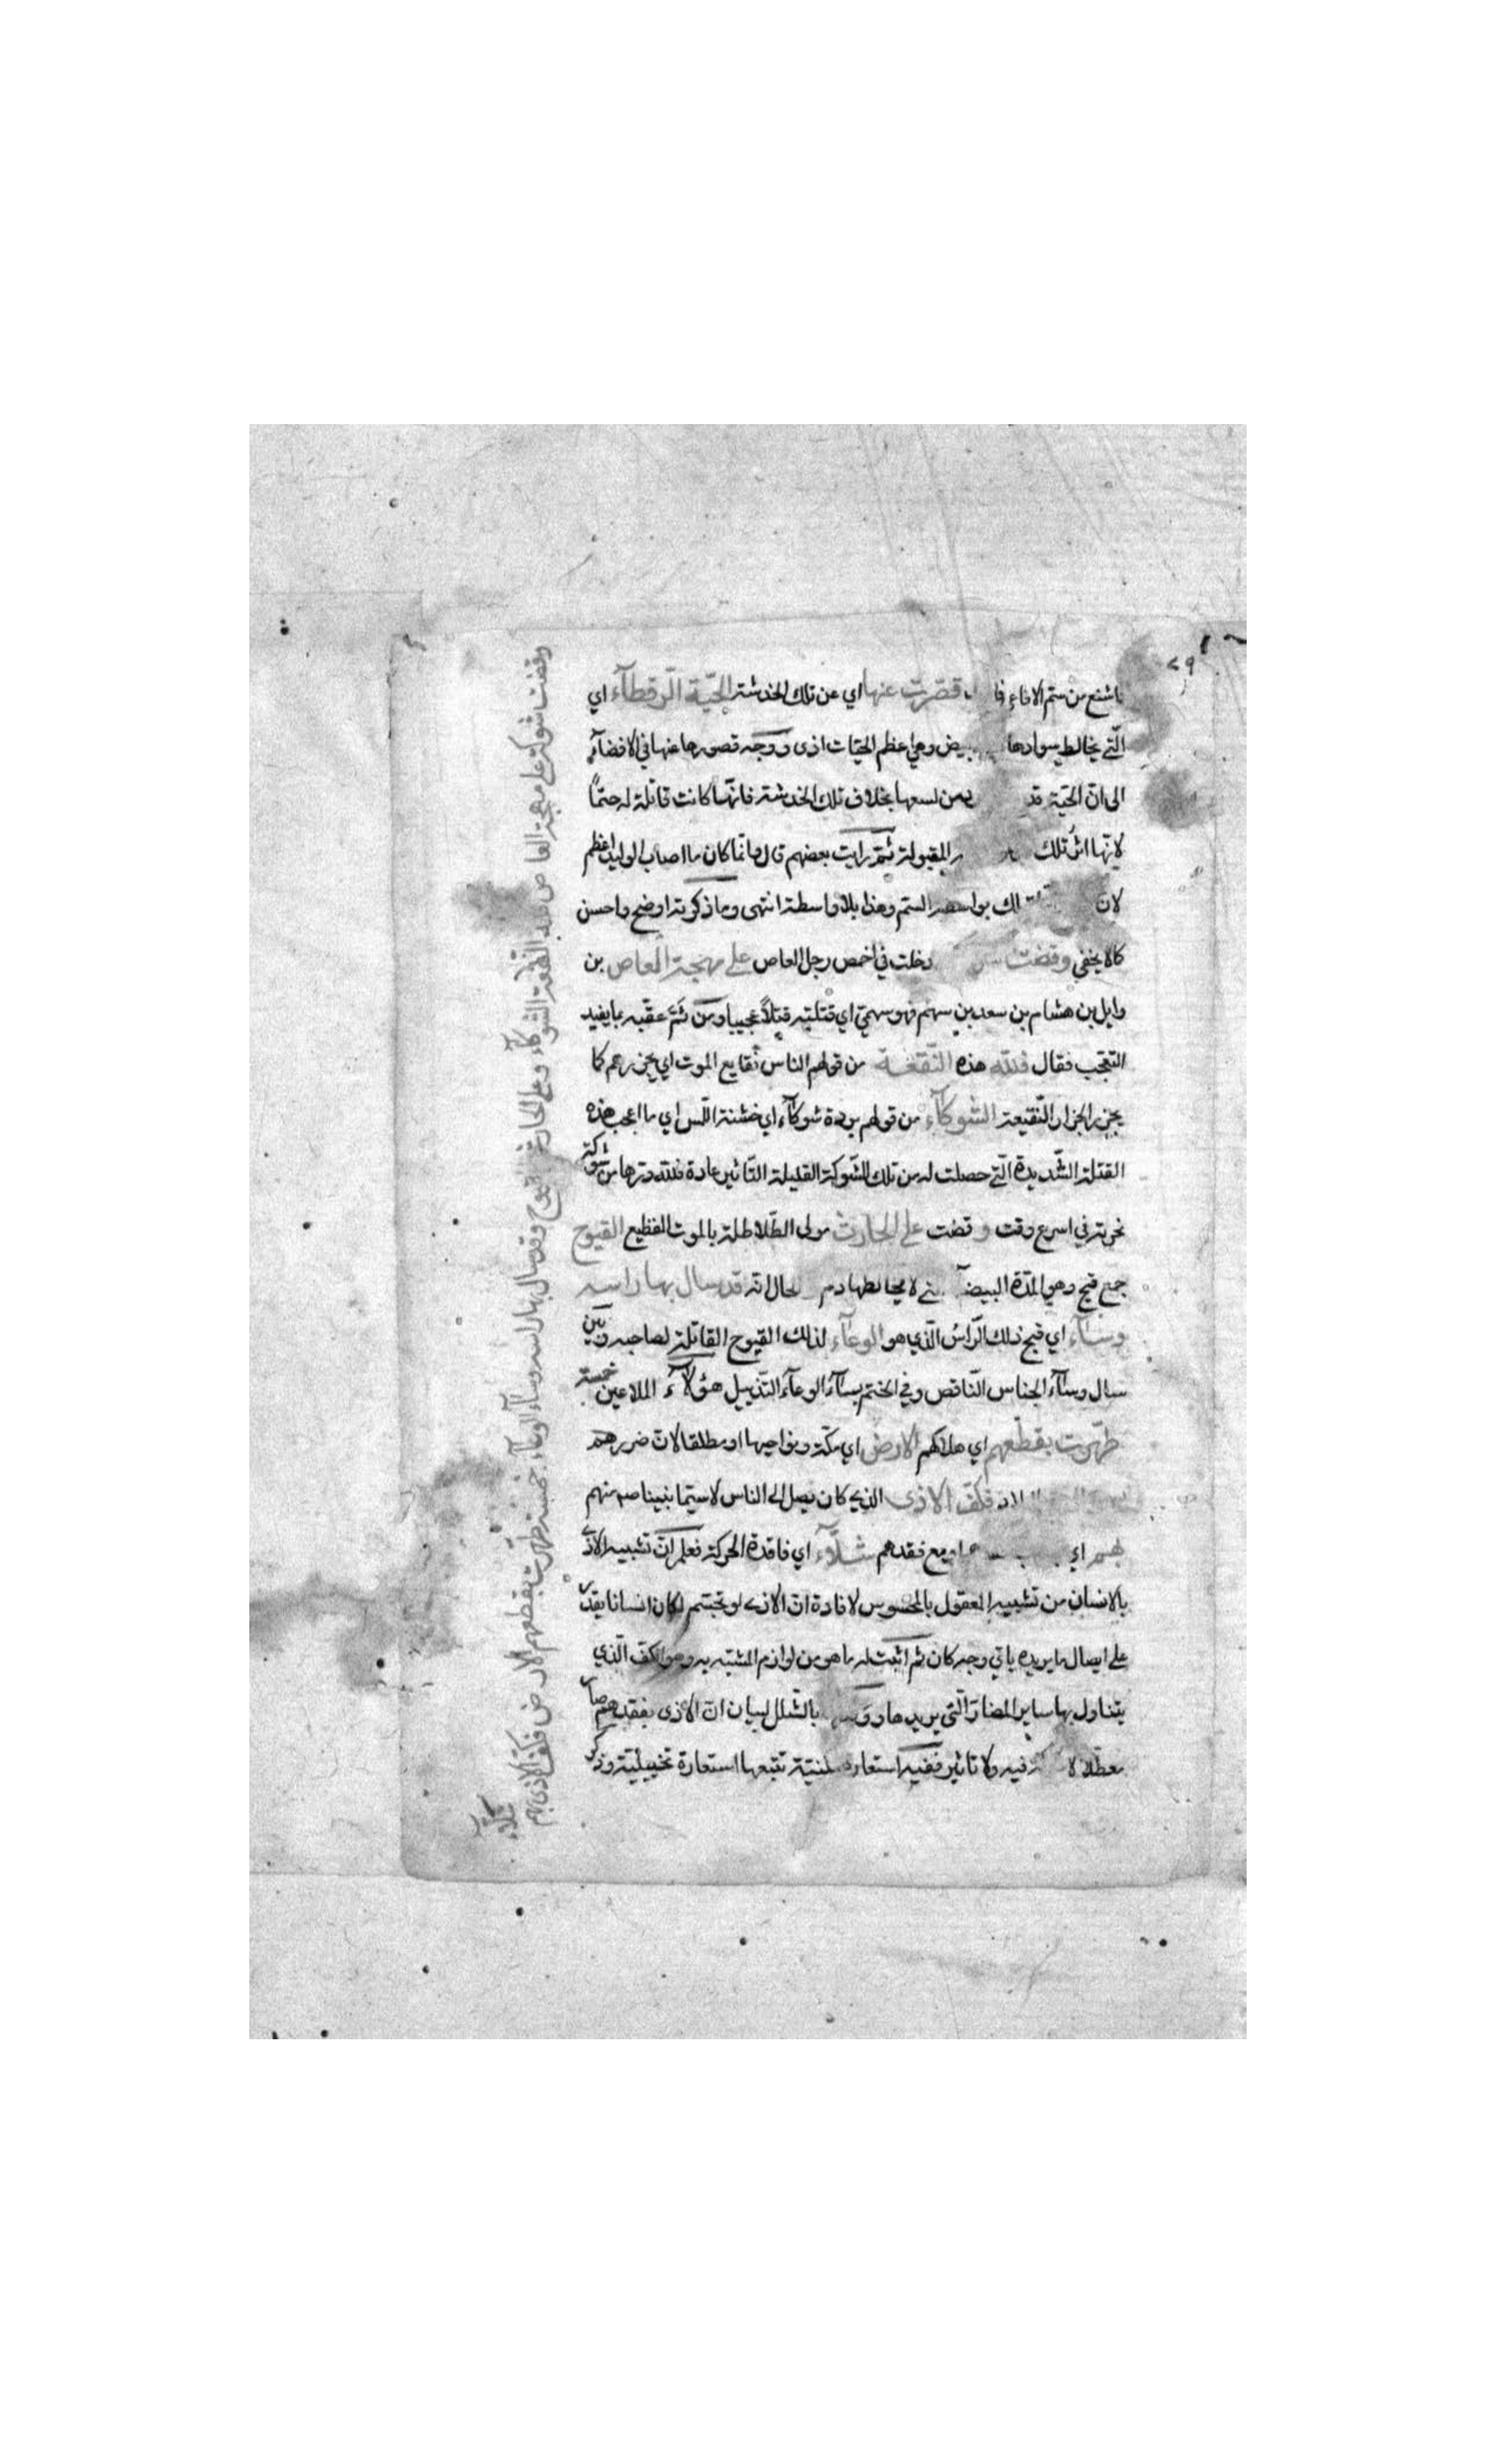 ٢٩
باشنع من ستم الافاعي قصرت عنها اي عن تلك الخدشة الحية الرقطآء اي
التي يخالط سوادها بيض وهي اعظم الحيات اذى ووجه قصورها عنها في الافضآء
الى ان الحية قد من لسعها بخلاف تلك الخدشة فانها كانت قاتلة له حتمًا
لانها اثر تلك المقبولة ثم رايت بعضهم قال وانما كان ما اصاب الوليد اعظم
لان بواسطة السم وهذا بلا واسطة انتهى وما ذكرته اوضح واحسن
كما لا يخفى وقضت دخلت في اخمص رجل العاص على مهجة العاص بن
وايل بن هشام بن سعد بن سهم فهو سهمي اي قتلته قتلاً عجيبا ومن ثم عقبه بما يفيد
التعجب فقال فلله هذه النقعة من قولهم الناس نقايع الموت اي يجزرهم كما
يجزر الجزار النقيعة الشوكآء من قولهم بردة شوكآء اي خشنة اللمس اي ما اعجب هذه
القتلة الشديدة التي حصلت له من تلك الشوكة القليلة التاثير عادة فلله درها من شوكة
نحرته في اسرع وقت وقضت على الحارث مولى الطلاطلة بالموت الفظيع القيوح
جمع قيح وهو المدة البيضآ لا يخالطها دم الحال انه قد سال بها راسه
وسآء اي قبح ذلك الراس الذي هو الوعآء لذلك القيوح القاتلة لصاحبه وبين
سال وسآء الجناس الناقص وفي الختم بسآء الوعآء التذييل هؤلآء الملاعين خمسة
طهرت بقطعهم اي هلاكهم الارض اي مكة ونواحيها او مطلقا لان ضررهم
فكف الاذى الذي كان يصل الى الناس لا سيما نبينا صم منهم
بهم اي مع فقدهم شلآء اي فاقدة الحركة فعلم ان تشبيه الاذى
بالانسان من تشبيه المعقول بالمحسوس لافادة ان الاذى لو تجسم لكان انسانا يقدر
على ايصال ما يريده باي وجه كان ثم اثبت له ما هو من لوازم المشبه به وهو الكف الذي
يتناول بها ساير المضار التي يريدها بالشلل لبيان ان الاذى بفقدهم صار
معطلا لا فيه ولا تاثير ففيه استعارة مكنية تتبعها استعارة تخييلية وذكر
وقضت شوكة على مهجة العاص فلله النقعة الشوكآء وعلى الحارث القيوح وقد سال بها راسه وسآء الوعآء خمسة طهرت بقطعهم الارض فكف الاذى بهم
شلآء